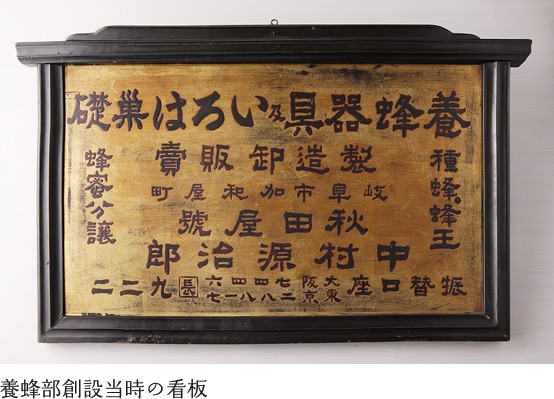 養蜂器具及いろは巣礎
種蜂蜂王
製造卸販賣
岐阜市加和屋町
秋田屋號
中村源治郎
蜂蜜分讓
振替口座 東京 大阪 七四四六 二八八一七 長 九二二
養蜂部創設当時の看板